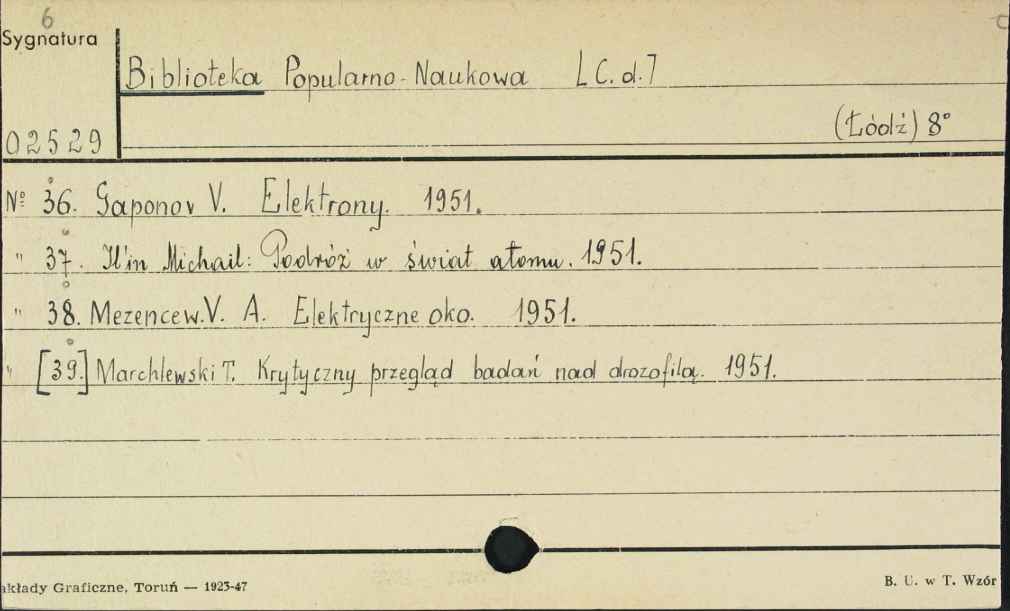 6
Sygnatura
Biblioteka Popularno-Naukowa [C.d.]
(Łódź) 8°
02529
№ 36. Gaponov V. Elektrony. 1951.
" 37. Il'in Michail: Podróż w świat atomu. 1951.
" 38. Mezencew V. A. Elektryczne oko. 1951.
" [39.] Marchlewski T. Krytyczny przegląd badań nad drozofilą. 1951.
akłady Graficzne, Toruń — 1923-47
B. U. w T. Wzór